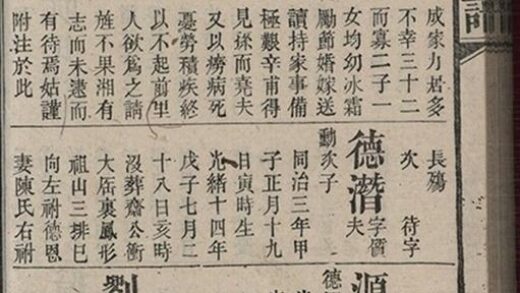 譜
成家力居多
不幸三十二
而寡二子一
女均幼氷霜
勵節婚嫁送
讀持家事備
極艱辛甫得
見孫而堯夫
又以癆病死
憂勞積疾終
以不起前里
人欲爲之請
旌不果湘有
志而未遂而
有待焉姑謹
附注於此
長殤
次 待字
德潛 字價夫
勳次子
同治三年甲
子正月十九
日寅時生
光緒十四年
戊子七月二
十八日亥時
沒葬齋公衝
大 裏鳳形
祖山三排巳
向左祔德恩
妻陳氏右祔
源
德
劉